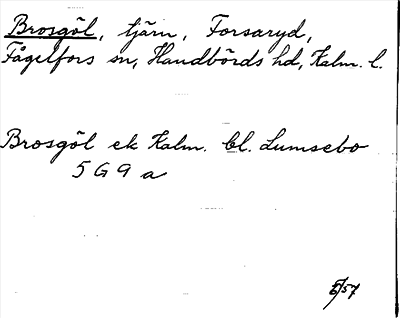 Brosgöl, tjärn, Forsaryd,
Fågelfors sn, Handbörds hd, Kalm. l.
Brosgöl ek Kalm. bl. Lumsebo
5 G 9 a
5/57